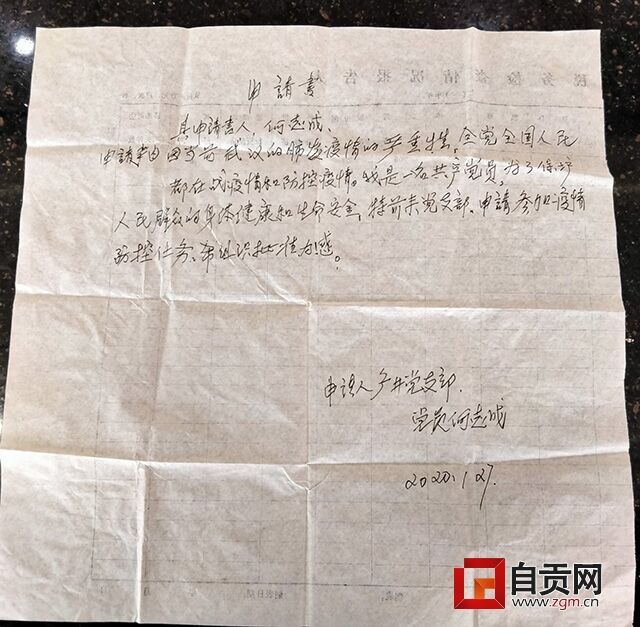 税务检查情况报告
申請書
具申請書人，何志成。
申請事由因当前武汉的肺炎疫情的严重性，全党全国人民
都在战疫情和防控疫情。我是一名共产党员，为了保护
人民群众的身体健康和生命安全，特前来党支部、申請参加疫情
防控任务、希组织批准为感。
申請人 井党支部.
党员何志成
2020.1.27.
自贡网
www.zgm.cn